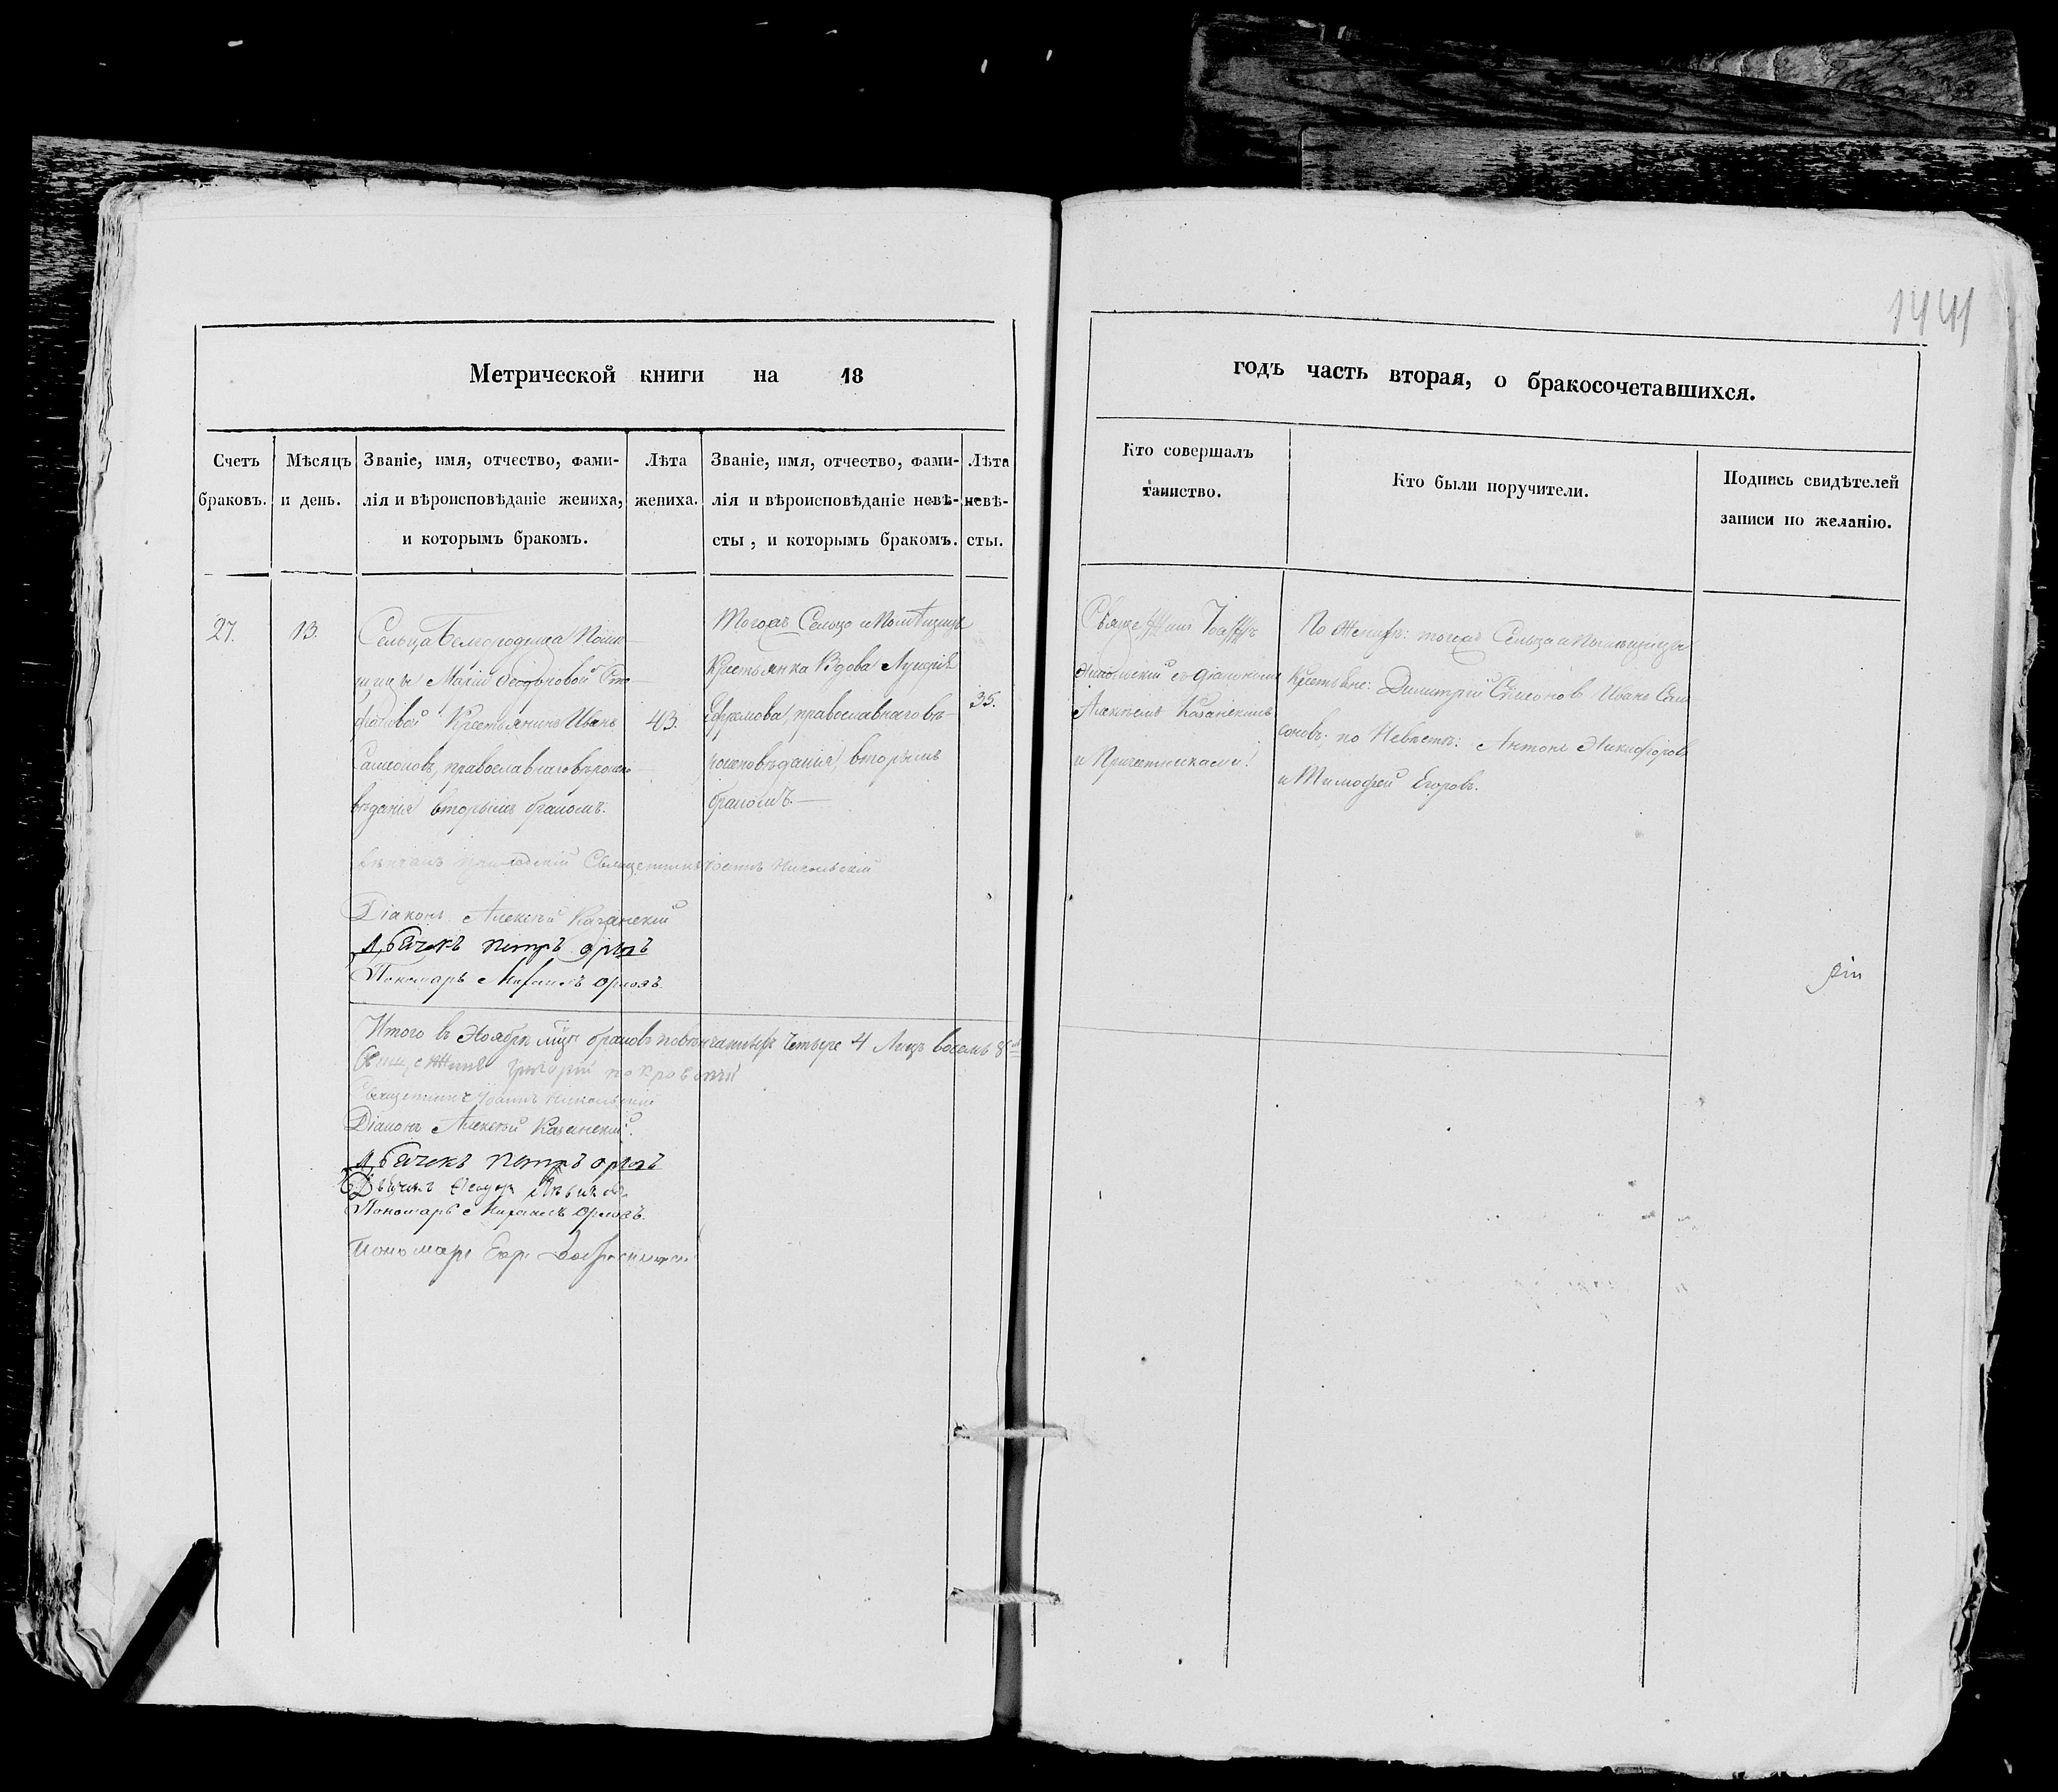 1441
Метрической книги на 18
годъ часть вторая, о бракосочетавшихся.
Счетъ
браковъ.
Мѣсяцъ
и день.
Званіе, имя, отчество, фами-
лія и вѣроисповѣданіе жениха,
и которымъ бракомъ.
Лѣта
жениха.
Званіе, имя, отчество, фами-
лія и вѣроисповѣданіе невѣ-
сты, и которымъ бракомъ.
Лѣта
невѣ-
сты.
Кто совершалъ
таинство.
Кто были поручители.
Подпись свидѣтелей
записи по желанію.
27.
13.
Сельца
Маріи Ѳеодоровой
Крестьянинъ Иванъ
Самсоновъ, православнаго вѣроиспо-
вѣданія вторымъ бракомъ.
43.
Тогожъ Сельца и Помѣщицы
Крестьянка Вдова Лукерія
Ефремова, православнаго вѣ-
роисповѣданія, вторымъ
бракомъ.
35.
Никольскій съ Діакономъ
Алексѣемъ Казанскимъ
и Причетниками.
По Женихѣ: тогожъ Сельца и Помѣщицы
Крестьяне: Димитрій Симоновъ Иванъ Сам
соновъ. по Невѣстѣ: Антонъ Никифоровъ
и Тимофей Егоровъ.
Священникъ Іоаннъ Никольскій
Діаконъ Алексѣй Казанскій
Дьячекъ Петръ Орловъ
Пономарь Михаилъ Орловъ.
Итого въ Ноябрѣ мцѣ браковъ повѣнчанныхъ Четыре 4 Лицъ восемь 8
Григорій Покровскій
Священникъ Іоаннъ Никольскій
Діаконъ Алексѣй Казанскій.
Дьячекъ Петръ Орловъ
Дьячекъ Ѳеодоръ
Пономарь Михаилъ Орловъ.
Пономарь